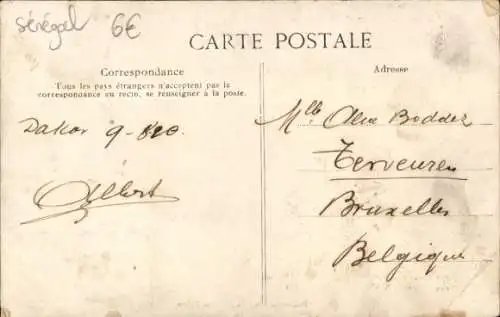 Sénégal 6€
CARTE POSTALE
Correspondance
Tous les pays étrangers n'acceptent pas la
correspondance au recto, se renseigner à la poste.
Adresse
Dakar 9-
Albert
Mlle Bodder
Tervueren
Bruxelles
Belgique